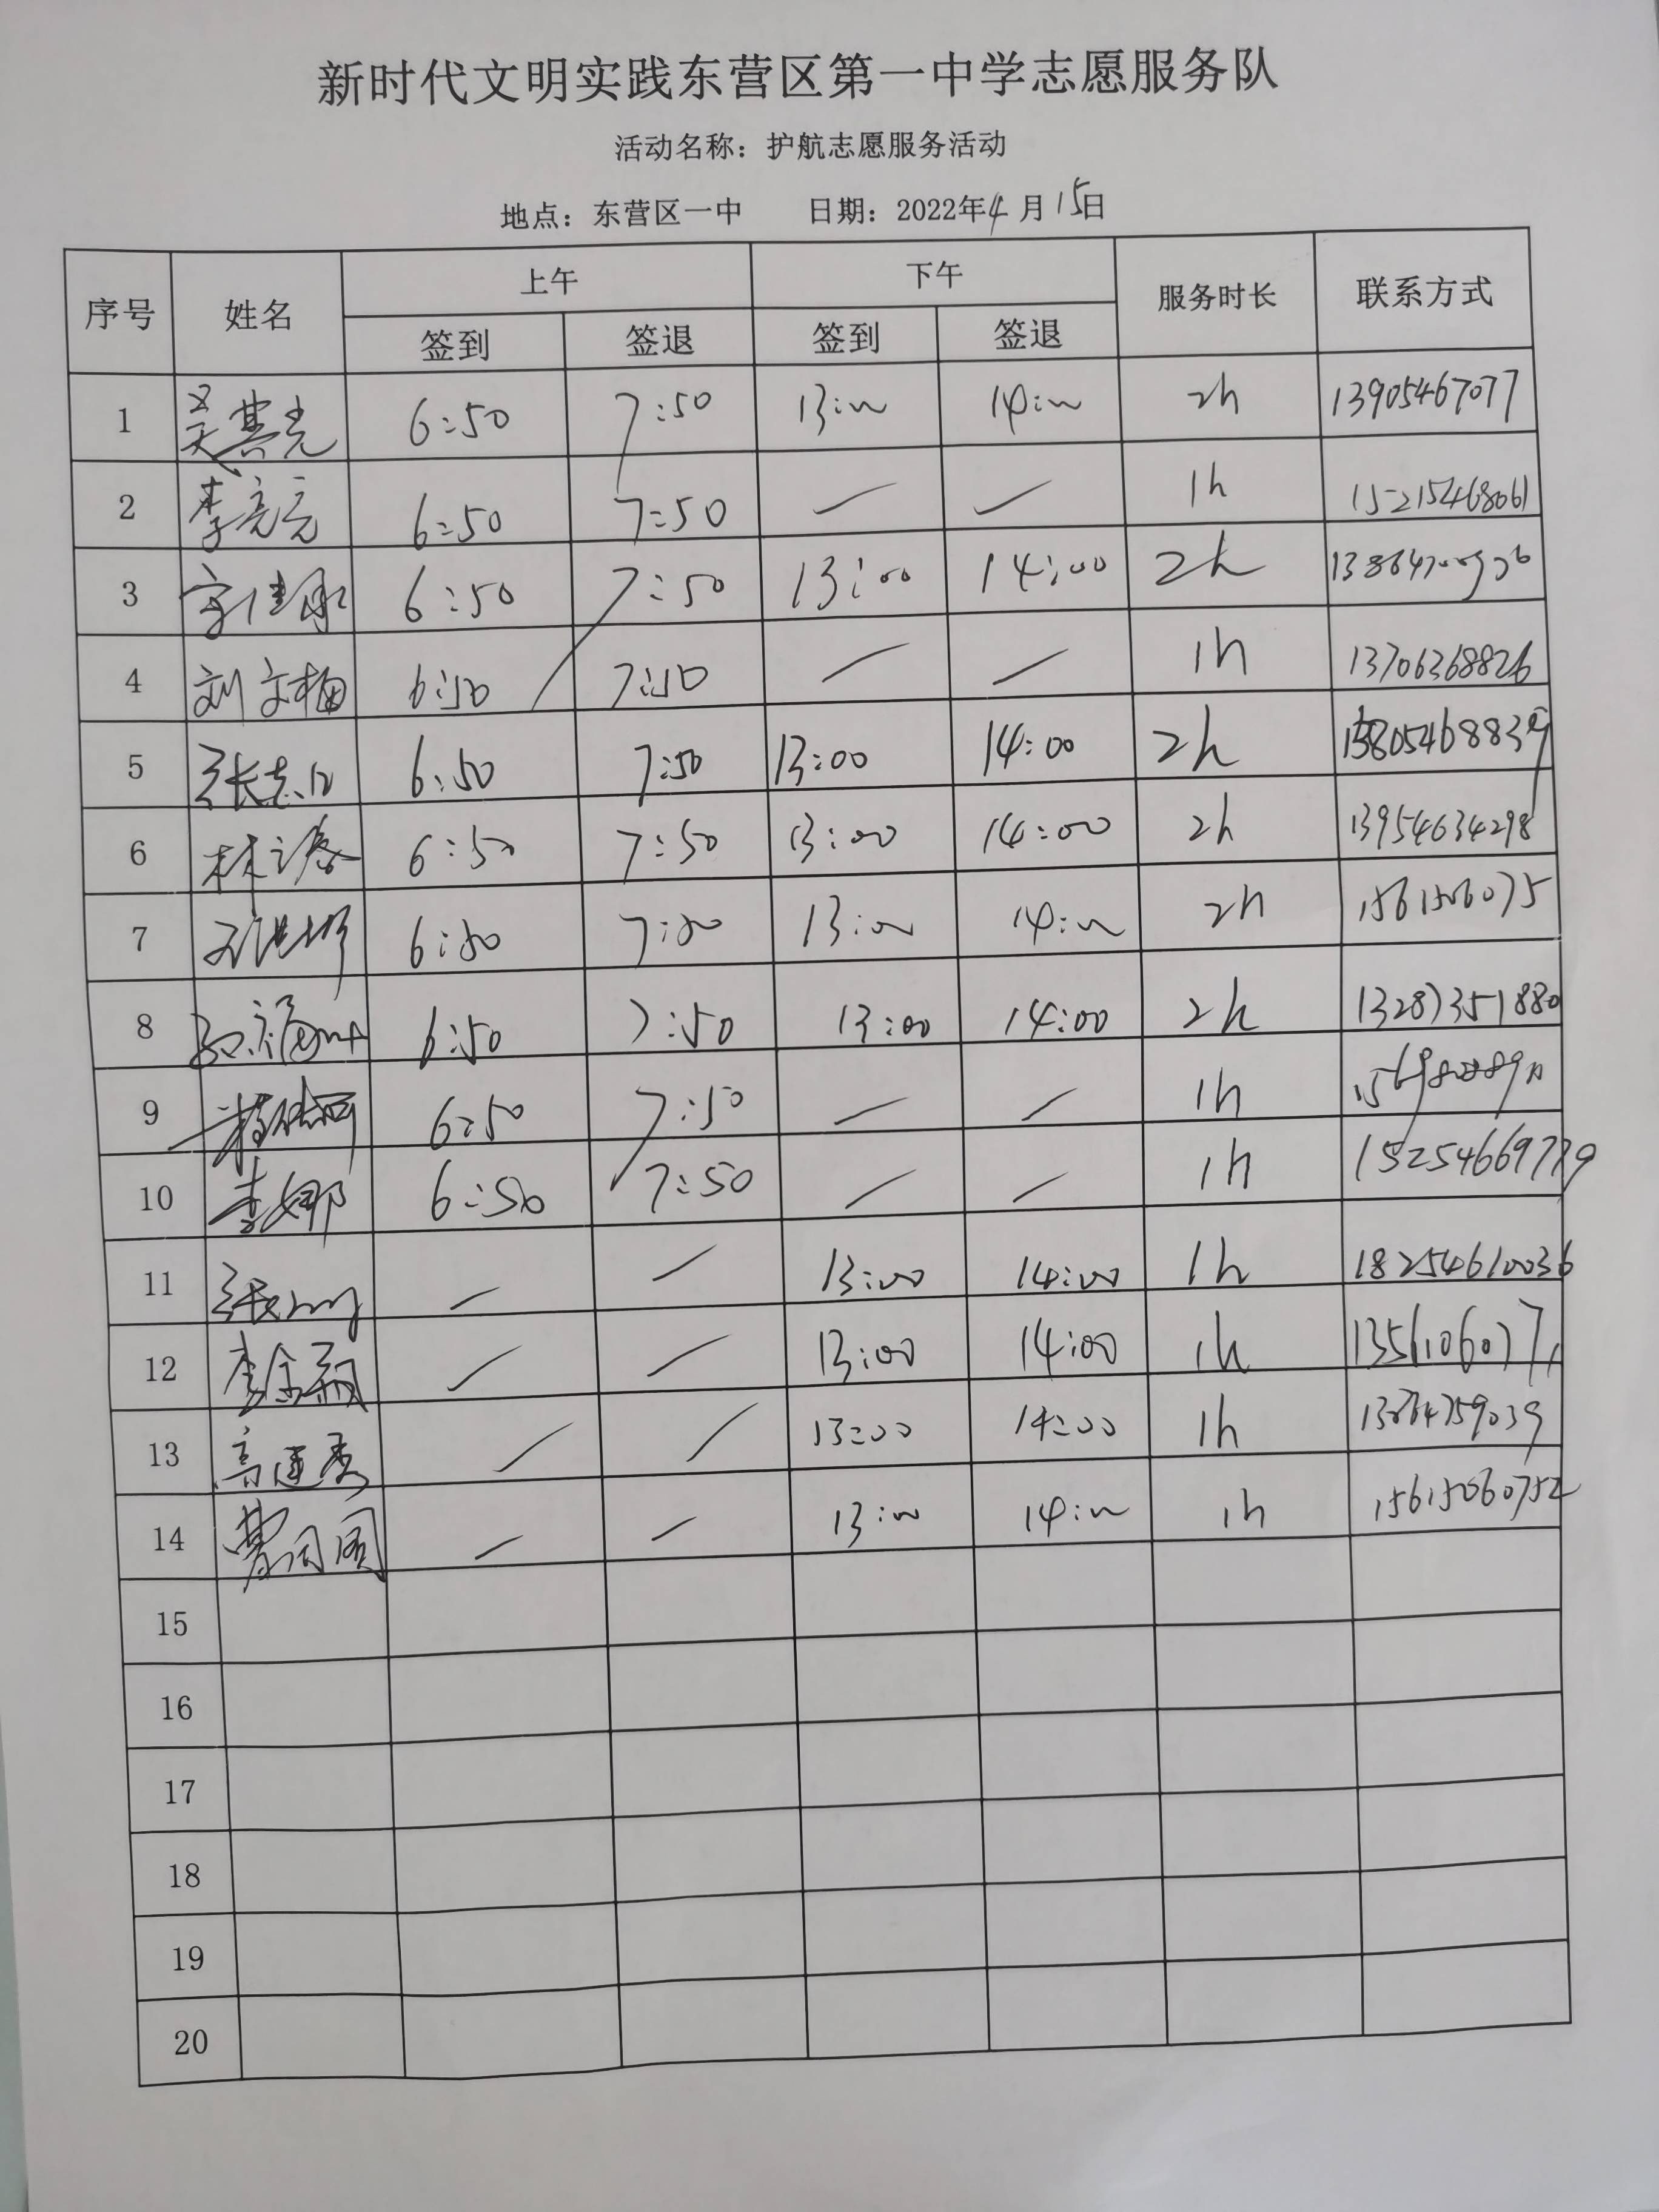 新时代文明实践东营区第一中学志愿服务队
活动名称：护航志愿服务活动
地点：东营区一中 日期：2022年4月15日
序号 姓名 上午 下午 服务时长 联系方式
签到 签退 签到 签退
1 吴其光 6:50 7:50 13:00 14:00 2h 13905467077
2 李亮亮 6:50 7:50 — — 1h 15215468061
3 6:50 7:50 13:00 14:00 2h
4 刘文梅 6:50 7:50 — — 1h 13706368826
5 6:50 7:50 13:00 14:00 2h
6 6:50 7:50 13:00 14:00 2h 13954634298
7 6:50 7:50 13:00 14:00 2h 1561506075
8 6:50 7:50 13:00 14:00 2h 13287351880
9 6:50 7:50 — — 1h
10 李娜 6:50 7:50 — — 1h 15254669779
11 — — 13:00 14:00 1h 18254610036
12 — — 13:00 14:00 1h
13 高连秀 — — 13:00 14:00 1h
14 — — 13:00 14:00 1h 15615060752
15
16
17
18
19
20